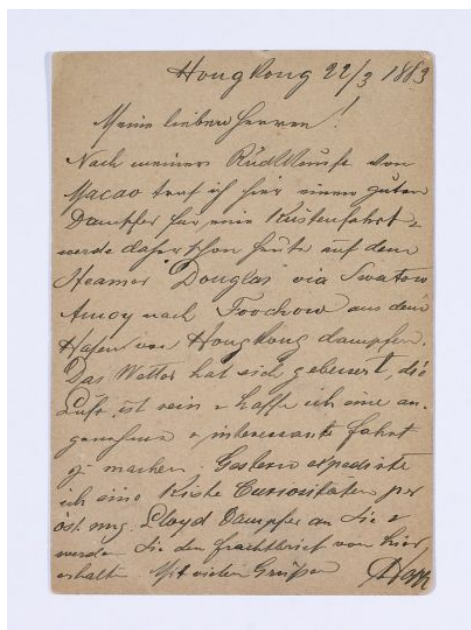 Hongkong 22/3 1883
Meine lieben Herren!
Nach meiner Rückkunft von
Macao traf ich hier einen guten
Dampfer für eine Küstenfahrt &
werde daher schon heute auf dem
Steamer "Douglas" via Swatow
Amoy nach Foochow aus dem
Hafen von Hongkong dampfen.
Das Wetter hat sich gebessert, die
Luft ist rein & hoffe ich eine an-
genehme & interessante Fahrt
zu machen. Gestern expedirte
ich eine Kiste Curiositäten per
öst. ung. Lloyd Dampfer an Sie &
werden Sie den Frachtbrief von hier
erhalten Mit vielen Grüßen